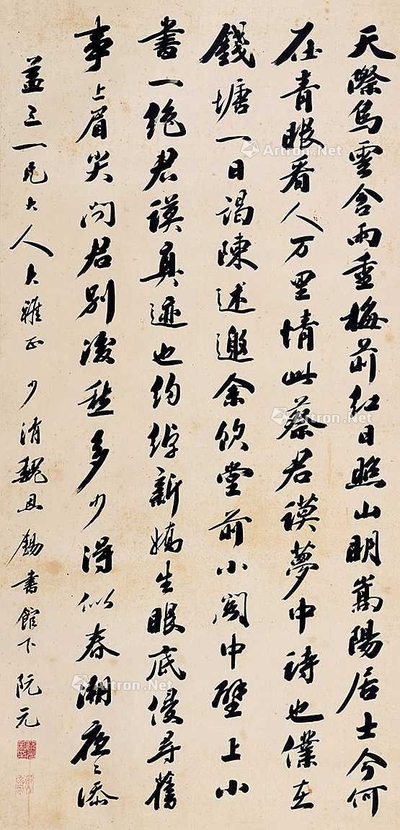 天際烏雲含雨重樓前紅日照山明嵩陽居士今何
在青眼看人万里情此蔡君謨夢中詩也僕在
錢塘一日謁陳述邀余飲堂前小閣中壁上小
書一絕君謨真迹也約綽新嬌生眼底侵尋舊
事上眉尖問君別後愁多少得似春潮夜〻添
三一兄大人大雅正 少清魏 錫書館下阮元
Artron.Net